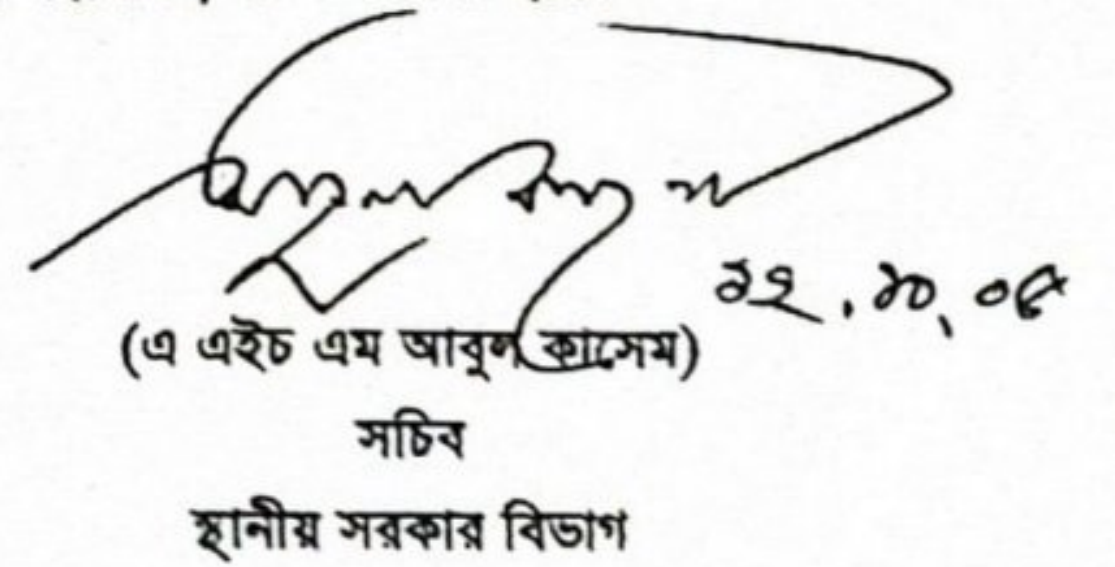 ১২.১০.০৫
(এ এইচ এম আবুল কাসেম)
সচিব
স্থানীয় সরকার বিভাগ